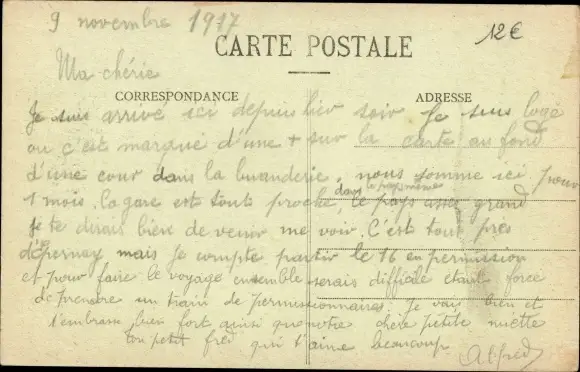 9 novembre 1917
12€
CARTE POSTALE
Ma chérie
CORRESPONDANCE
ADRESSE
Je suis arrivé ici depuis hier soir je suis logé
ou ç'est marqué d'une + sur la carte au fond
d'une cour dans la buanderie, nous somme ici pour
1 mois. la gare est tout proche,
dans le pays même
le pays assez grand
je te dirais bien de venir me voir. C'est tout près
d'Épernay mais je compte partir le 16 en permission
et pour faire le voyage ensemble serais difficile étant forcé
de prendre un train de permissionnaires. Je vais bien et
t'embrasse bien fort ainsi que notre chère petite
ton petit fred qui t'aime beaucoup
Alfred